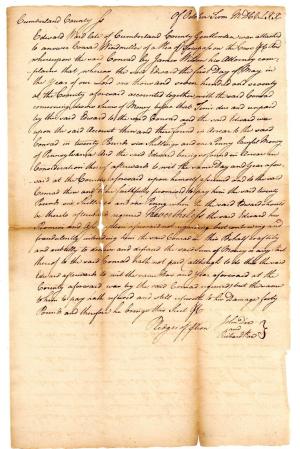 Cumberland County ss
Edward Ward late of Cumberland County Gentleman was attached
to answer Conrad Windmiller of a Plea of Trespass on the Case &c
whereupon the said Conrad by James Wilson his Attorney com-
plains that whereas the said Edward the first Day of May in
the Year of our Lord one thousand seven hundred and seventy
at the County aforesaid accounted together with the said Conrad
concerning divers Sums of Money before that Time due and unpaid
by the said Edward to the said Conrad and the said Edward was
upon the Account then and there found in Arrear to the said
Conrad in twenty Pounds six Shillings and one Penny lawful Money
of Pennsylvania And the said Edward being so found in Arrear in
Consideration thereof afterwards to wit the same Day and Year afore-
said at the County aforesaid upon himself assumed and to the said
Conrad then and there faithfully promised to pay him the said twenty
Pounds six Shillings and one Penny when he the said Edward should
be thereto afterwards required Nevertheless the said Edward his
Promise and Assumption aforesaid not regarding but contriving and
fraudulently intending him the said Conrad in this Behalf craftily
and subtilly to deceive and defraud the said Sum of Money or any Part
thereof to the said Conrad hath not paid although to do this the said
Edward afterwards to wit the same Day and Year aforesaid at the
County aforesaid was by the said Conrad required but the same
to him to pay hath refused and still refuseth to his Damage forty
Pounds and therefore he brings this Suit &c
Pledges of Pros.
John Doe
and
Richard Roe